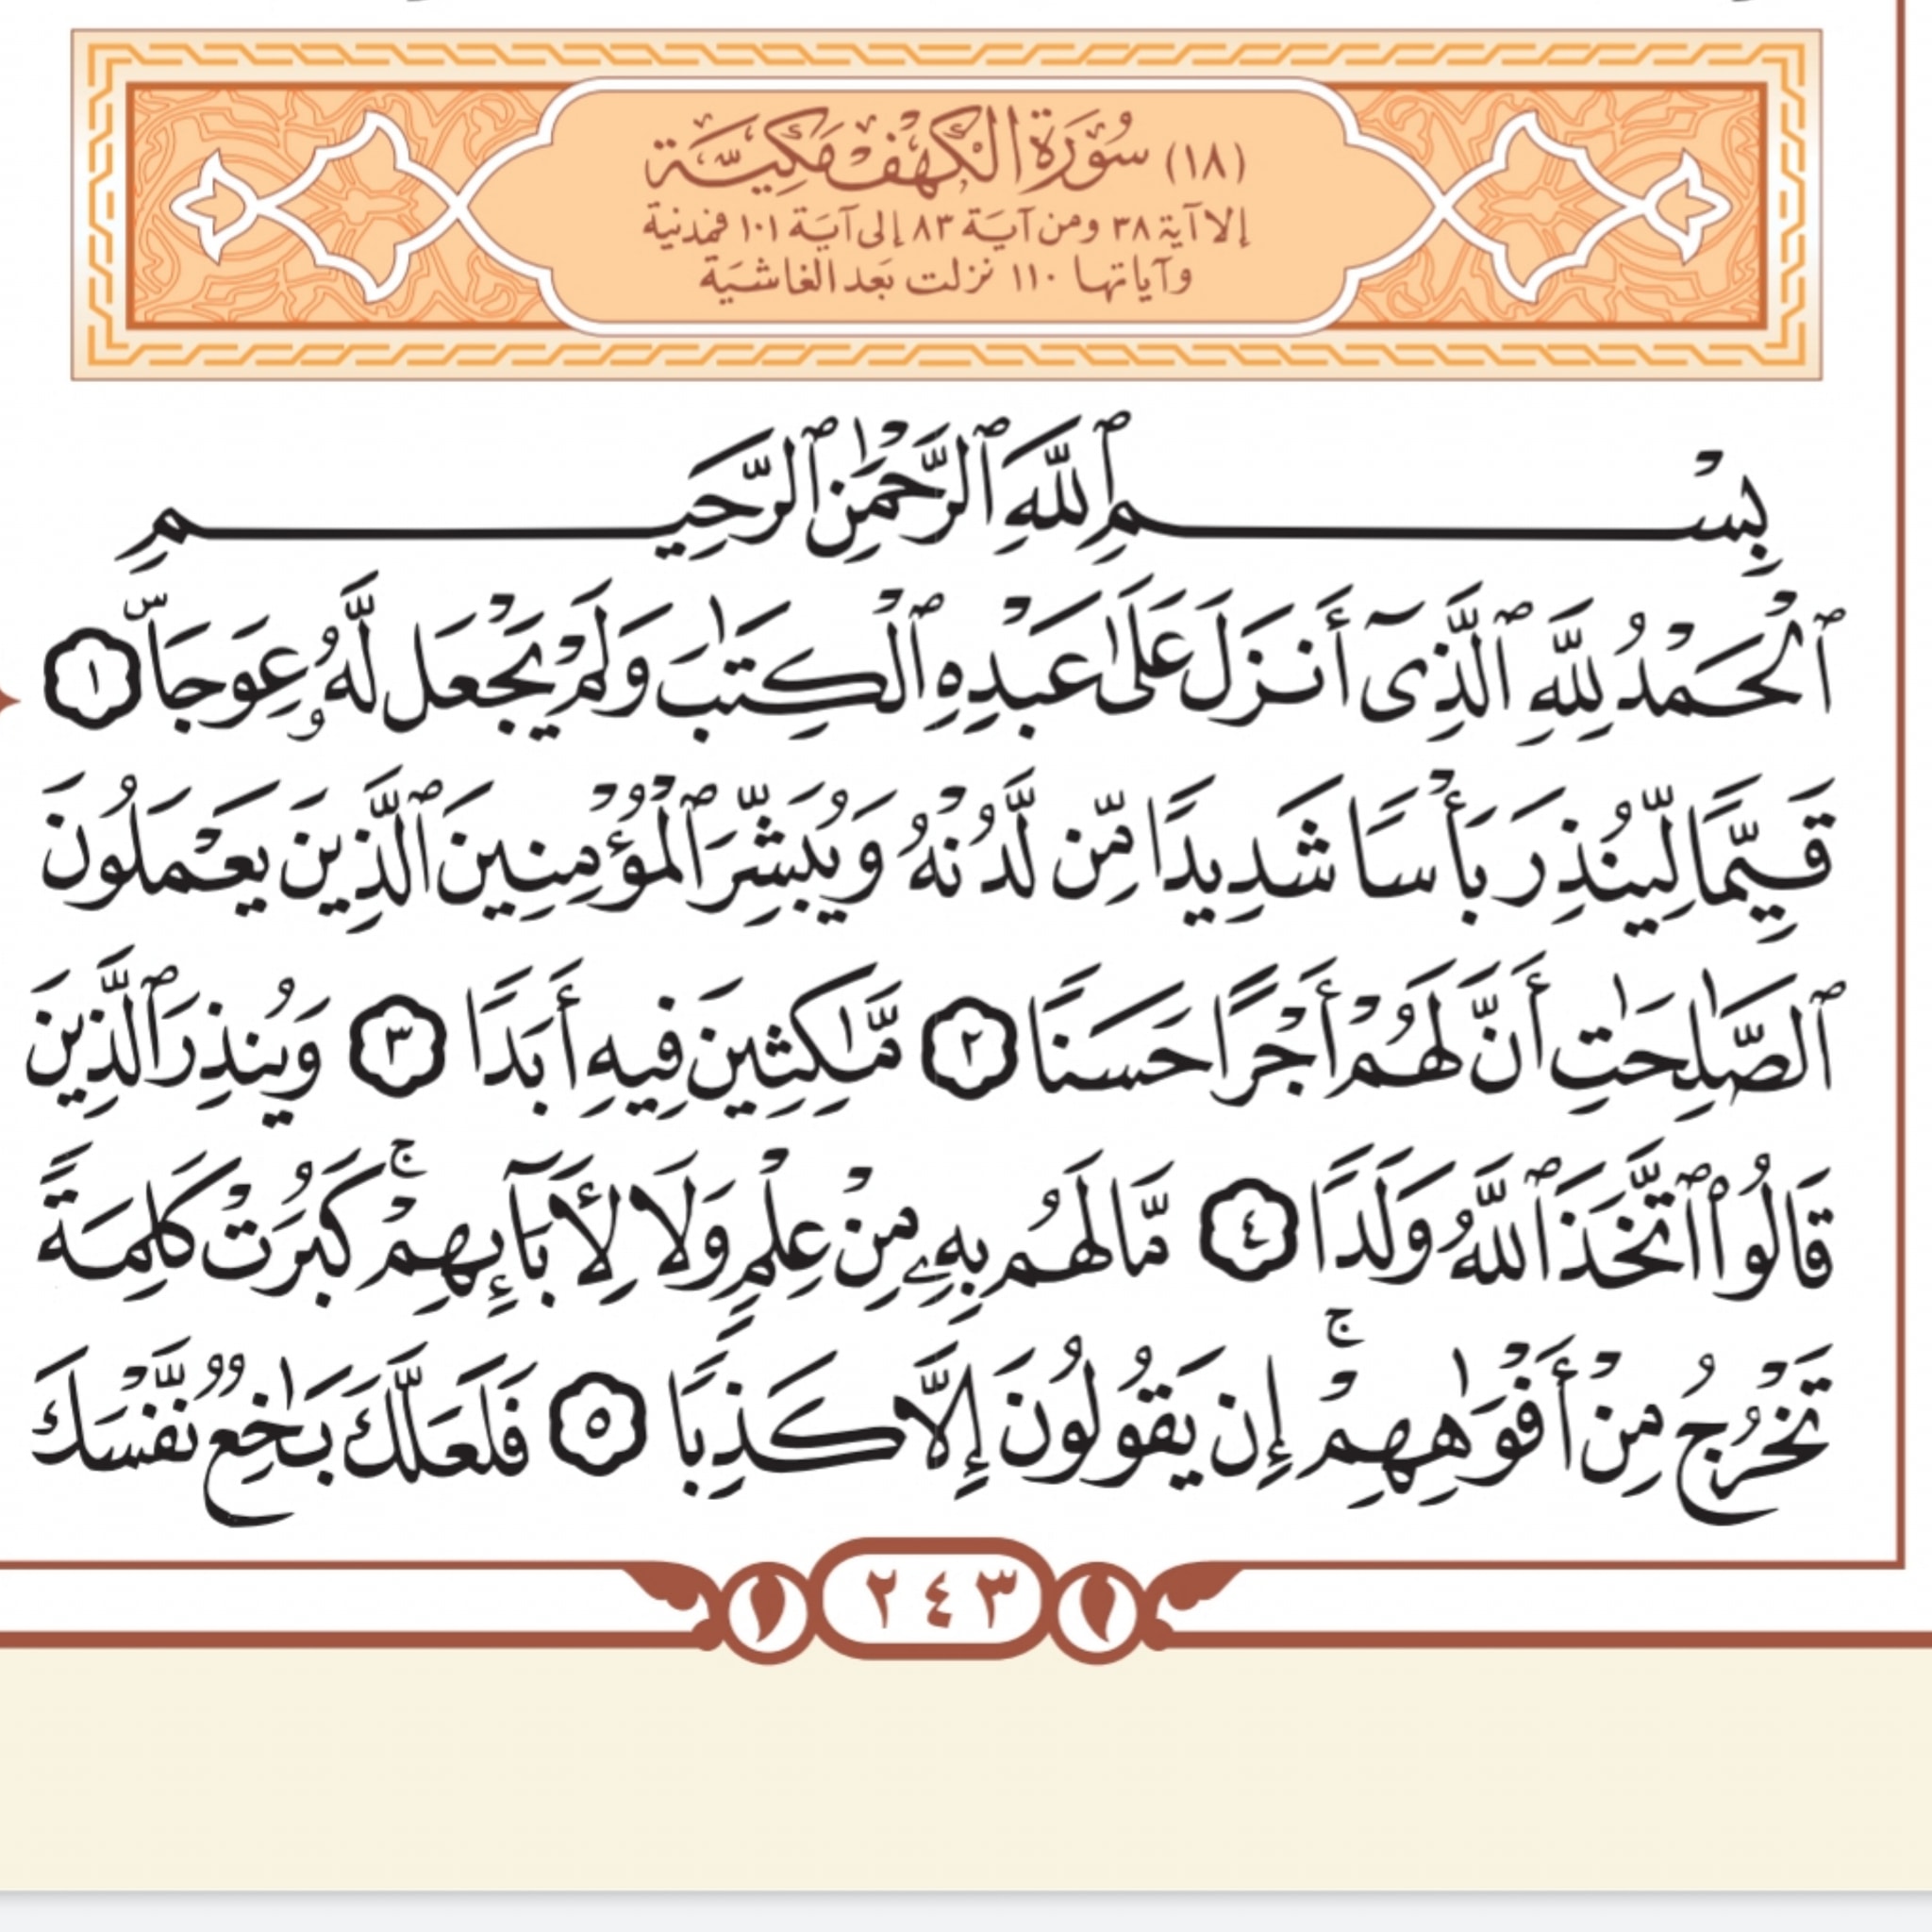 (١٨) سُورَةُ الكَهْفِ مَكِّيَّة
إلا آية ٣٨ ومن آية ٨٣ إلى آية ١٠١ فمدنية
وآياتها ١١٠ نزلت بعد الغاشية
بِسْمِ ٱللَّهِ ٱلرَّحْمَٰنِ ٱلرَّحِيمِ
ٱلْحَمْدُ لِلَّهِ ٱلَّذِىٓ أَنزَلَ عَلَىٰ عَبْدِهِ ٱلْكِتَٰبَ وَلَمْ يَجْعَل لَّهُۥ عِوَجَاۜ ١
قَيِّمًا لِّيُنذِرَ بَأْسًا شَدِيدًا مِّن لَّدُنْهُ وَيُبَشِّرَ ٱلْمُؤْمِنِينَ ٱلَّذِينَ يَعْمَلُونَ
ٱلصَّٰلِحَٰتِ أَنَّ لَهُمْ أَجْرًا حَسَنًا ٢ مَّٰكِثِينَ فِيهِ أَبَدًا ٣ وَيُنذِرَ ٱلَّذِينَ
قَالُوا۟ ٱتَّخَذَ ٱللَّهُ وَلَدًا ٤ مَّا لَهُم بِهِۦ مِنْ عِلْمٍ وَلَا لِأَبَآئِهِمْۚ كَبُرَتْ كَلِمَةً
تَخْرُجُ مِنْ أَفْوَٰهِهِمْۚ إِن يَقُولُونَ إِلَّا كَذِبًا ٥ فَلَعَلَّكَ بَٰخِعٌ نَّفْسَكَ
٢٤٣